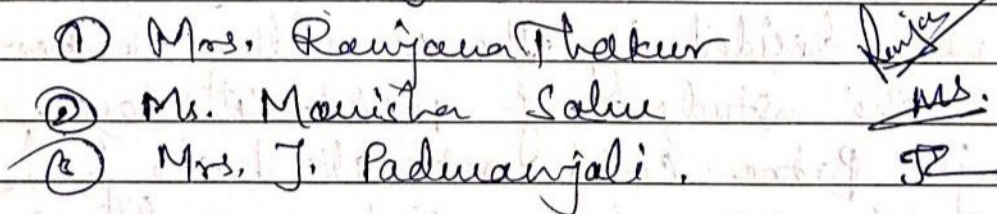 ① Mrs. Ranjana Thakur Ranjay
② Ms. Manisha Sahu MS.
③ Mrs. J. Padmanjali.